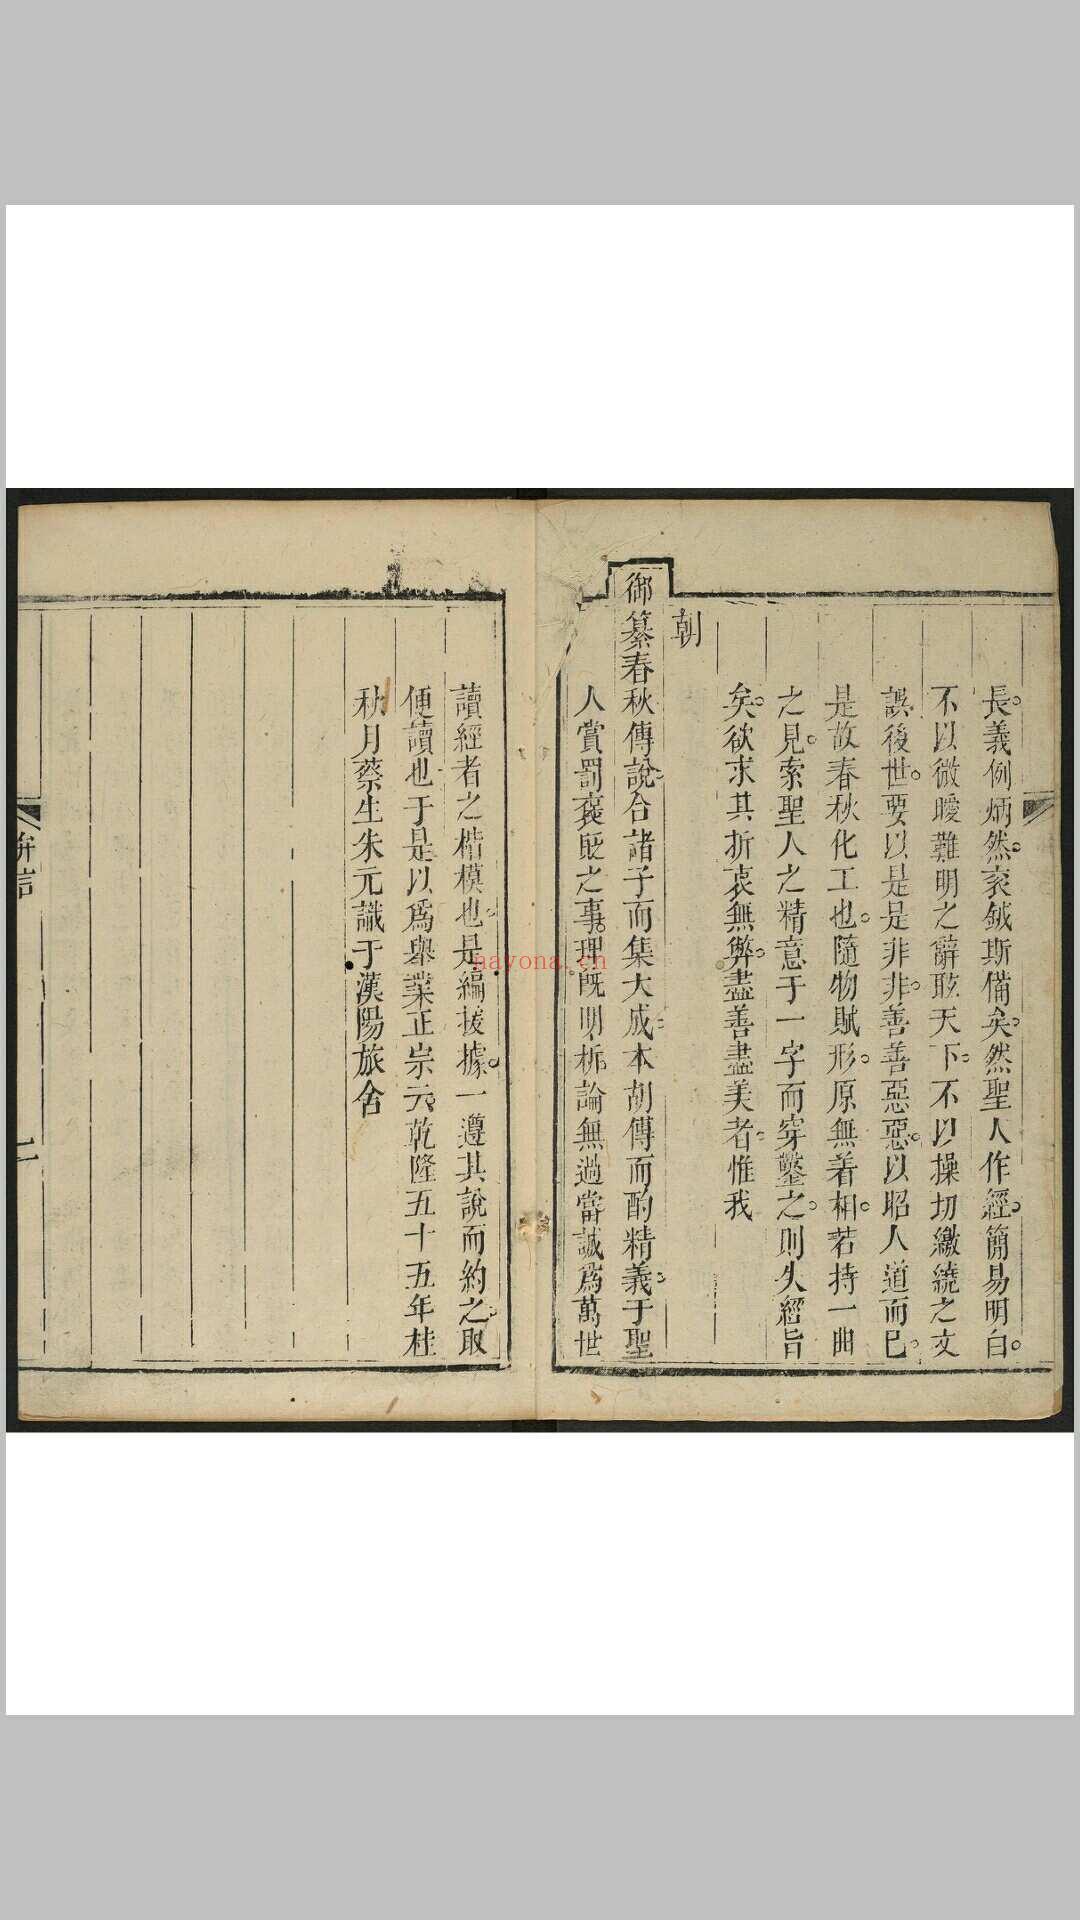 長義例炳然袞鉞斯備矣然聖人作經簡易明白
不以微曖難明之辭眩天下不以操切繳繞之文
誤後世要以是是非非善善惡惡以昭人道而已
是故春秋化工也隨物賦形原無着相若持一曲
之見索聖人之精意于一字而穿鑿之則失經旨
矣欲求其折衷無弊盡善盡美者惟我
朝
御纂春秋傳說合諸子而集大成本胡傳而酌精義于聖
人賞罰褒貶之事理既明析論無過當誠為萬世
讀經者之楷模也是編援據一遵其說而約之取
便讀也于是以爲舉業正宗云乾隆五十五年桂
秋月蔡生朱元識于漢陽旅舍
弁言
二
nayona.cn